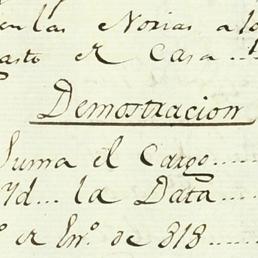 en las Norias a lo
asto de Casa
Demostracion
Suma el Cargo.....
Yd... la Data.....
de Enº. de 818...